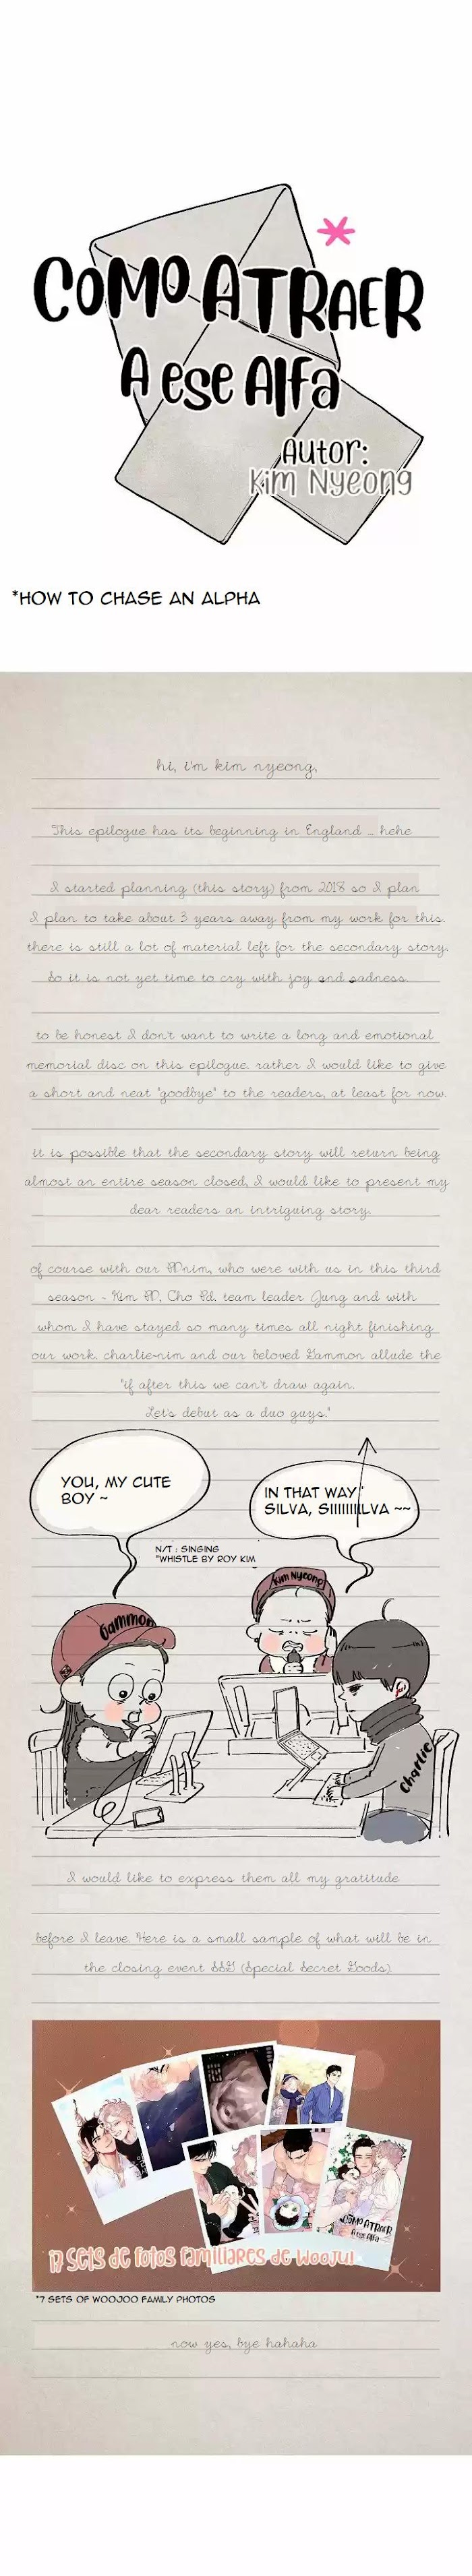 COMO ATRAER
A ese Alfa
*
Autor:
Kim Nyeong
*HOW TO CHASE AN ALPHA
hi, i'm kim nyeong,
This epilogue has its beginning in England ... hehe
I started planning (this story) from 2018 so I plan
I plan to take about 3 years away from my work for this.
there is still a lot of material left for the secondary story.
So it is not yet time to cry with joy and sadness.
to be honest I don't want to write a long and emotional
memorial disc on this epilogue. rather I would like to give
a short and neat "goodbye" to the readers, at least for now.
it is possible that the secondary story will return being
almost an entire season closed, I would like to present my
dear readers an intriguing story.
of course with our PDnim, who were with us in this third
season - Kim PD, Cho Pd. team leader Jung and with
whom I have stayed so many times all night finishing
our work. charlie-nim and our beloved Gammon allude the
"if after this we can't draw again.
Let's debut as a duo guys."
YOU, MY CUTE
BOY ~
IN THAT WAY
SILVA, SIIIIIIILVA ~~
N/T : SINGING
"WHISTLE BY ROY KIM
Kim Nyeong
Gammon
Charlie
I would like to express them all my gratitude
before I leave. Here is a small sample of what will be in
the closing event SSG (Special Secret Goods).
COMO ATRAER
A ese Alfa
17 sets de fotos familiares de Wooju!
*7 SETS OF WOOJOO FAMILY PHOTOS
now yes, bye hahaha